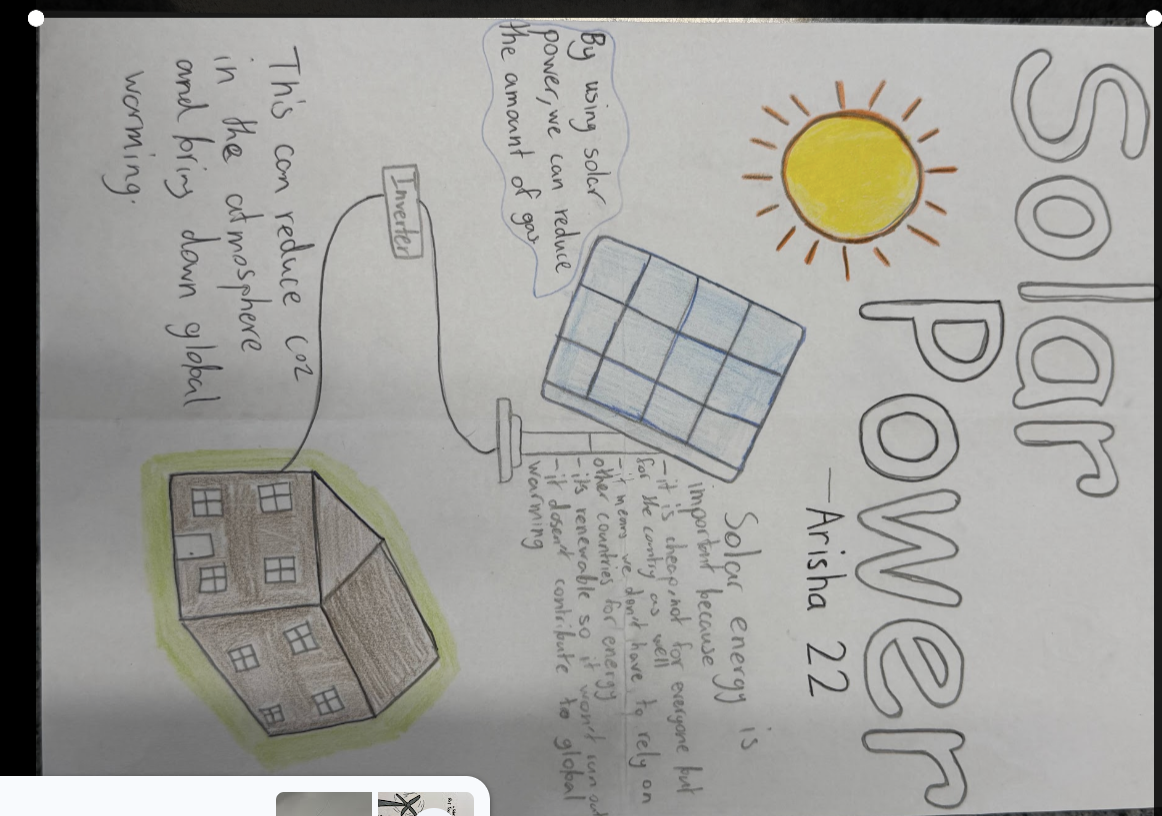 Solar
Power
—Arisha 22
By using solar
power, we can reduce
the amount of gas
Solar energy is
important because
-it is cheap, not for everyone but
for the contry as well
-it means we don't have to rely on
other countries for energy
-its renewable so it won't run out
-it dosen't contribute to global
warming
Inverter
This can reduce co2
in the atmosphere
and bring down global
warming.